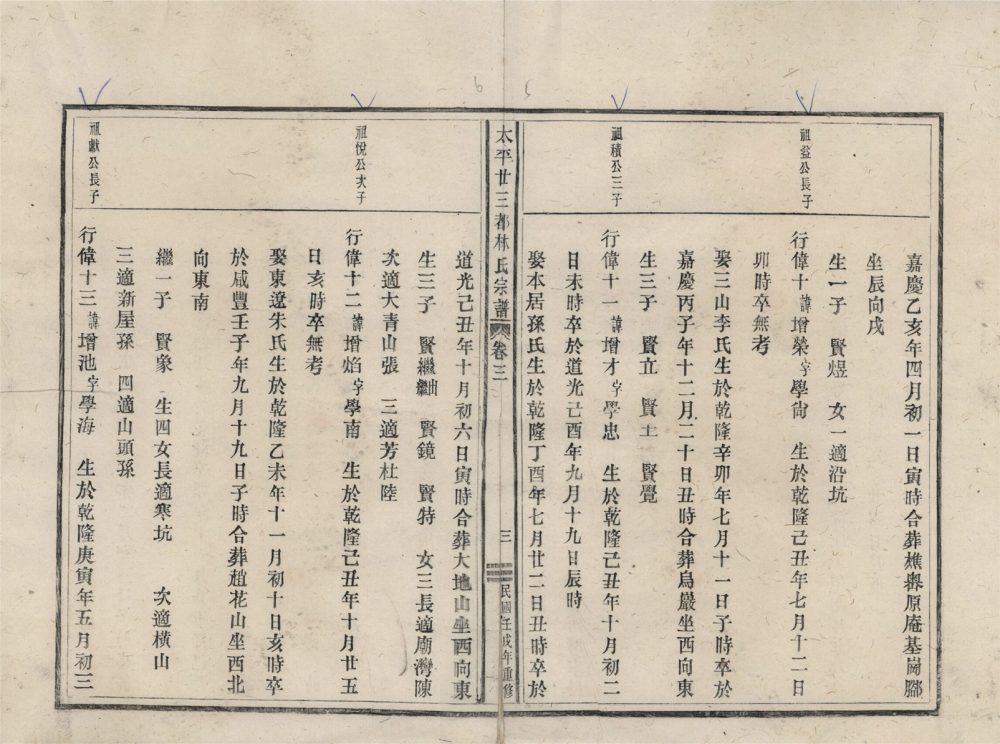 嘉慶乙亥年四月初一日寅時合葬樵嶴原庵基崗腳
坐辰向戌
生一子 賢煜 女一適沿坑
祖益公長子
行偉十諱增榮字學尚 生於乾隆己丑年七月十二日
卯時卒無考
娶三山李氏生於乾隆辛卯年七月十一日子時卒於
嘉慶丙子年十二月二十日丑時合葬烏巖坐西向東
生三子 賢立 賢土 賢覺
祖積公三子
行偉十一諱增才字學忠 生於乾隆己丑年十月初二
日未時卒於道光己酉年九月十九日辰時
娶本居孫氏生於乾隆丁酉年七月廿二日丑時卒於
太平廿三都林氏宗譜 卷三 三 民國壬戌年重修
道光己丑年十月初六日寅時合葬大地山坐西向東
生三子 賢繼出繼 賢鏡 賢特 女三長適廟灣陳
次適大青山張 三適芳杜陸
祖悅公次子
行偉十二諱增焰字學南 生於乾隆己丑年十月廿五
日亥時卒無考
娶東遼朱氏生於乾隆乙未年十一月初十日亥時卒
於咸豐壬子年九月十九日子時合葬趙花山坐西北
向東南
繼一子 賢象 生四女長適寒坑 次適橫山
三適新屋孫 四適山頭孫
祖獻公長子
行偉十三諱增池字學海 生於乾隆庚寅年五月初三